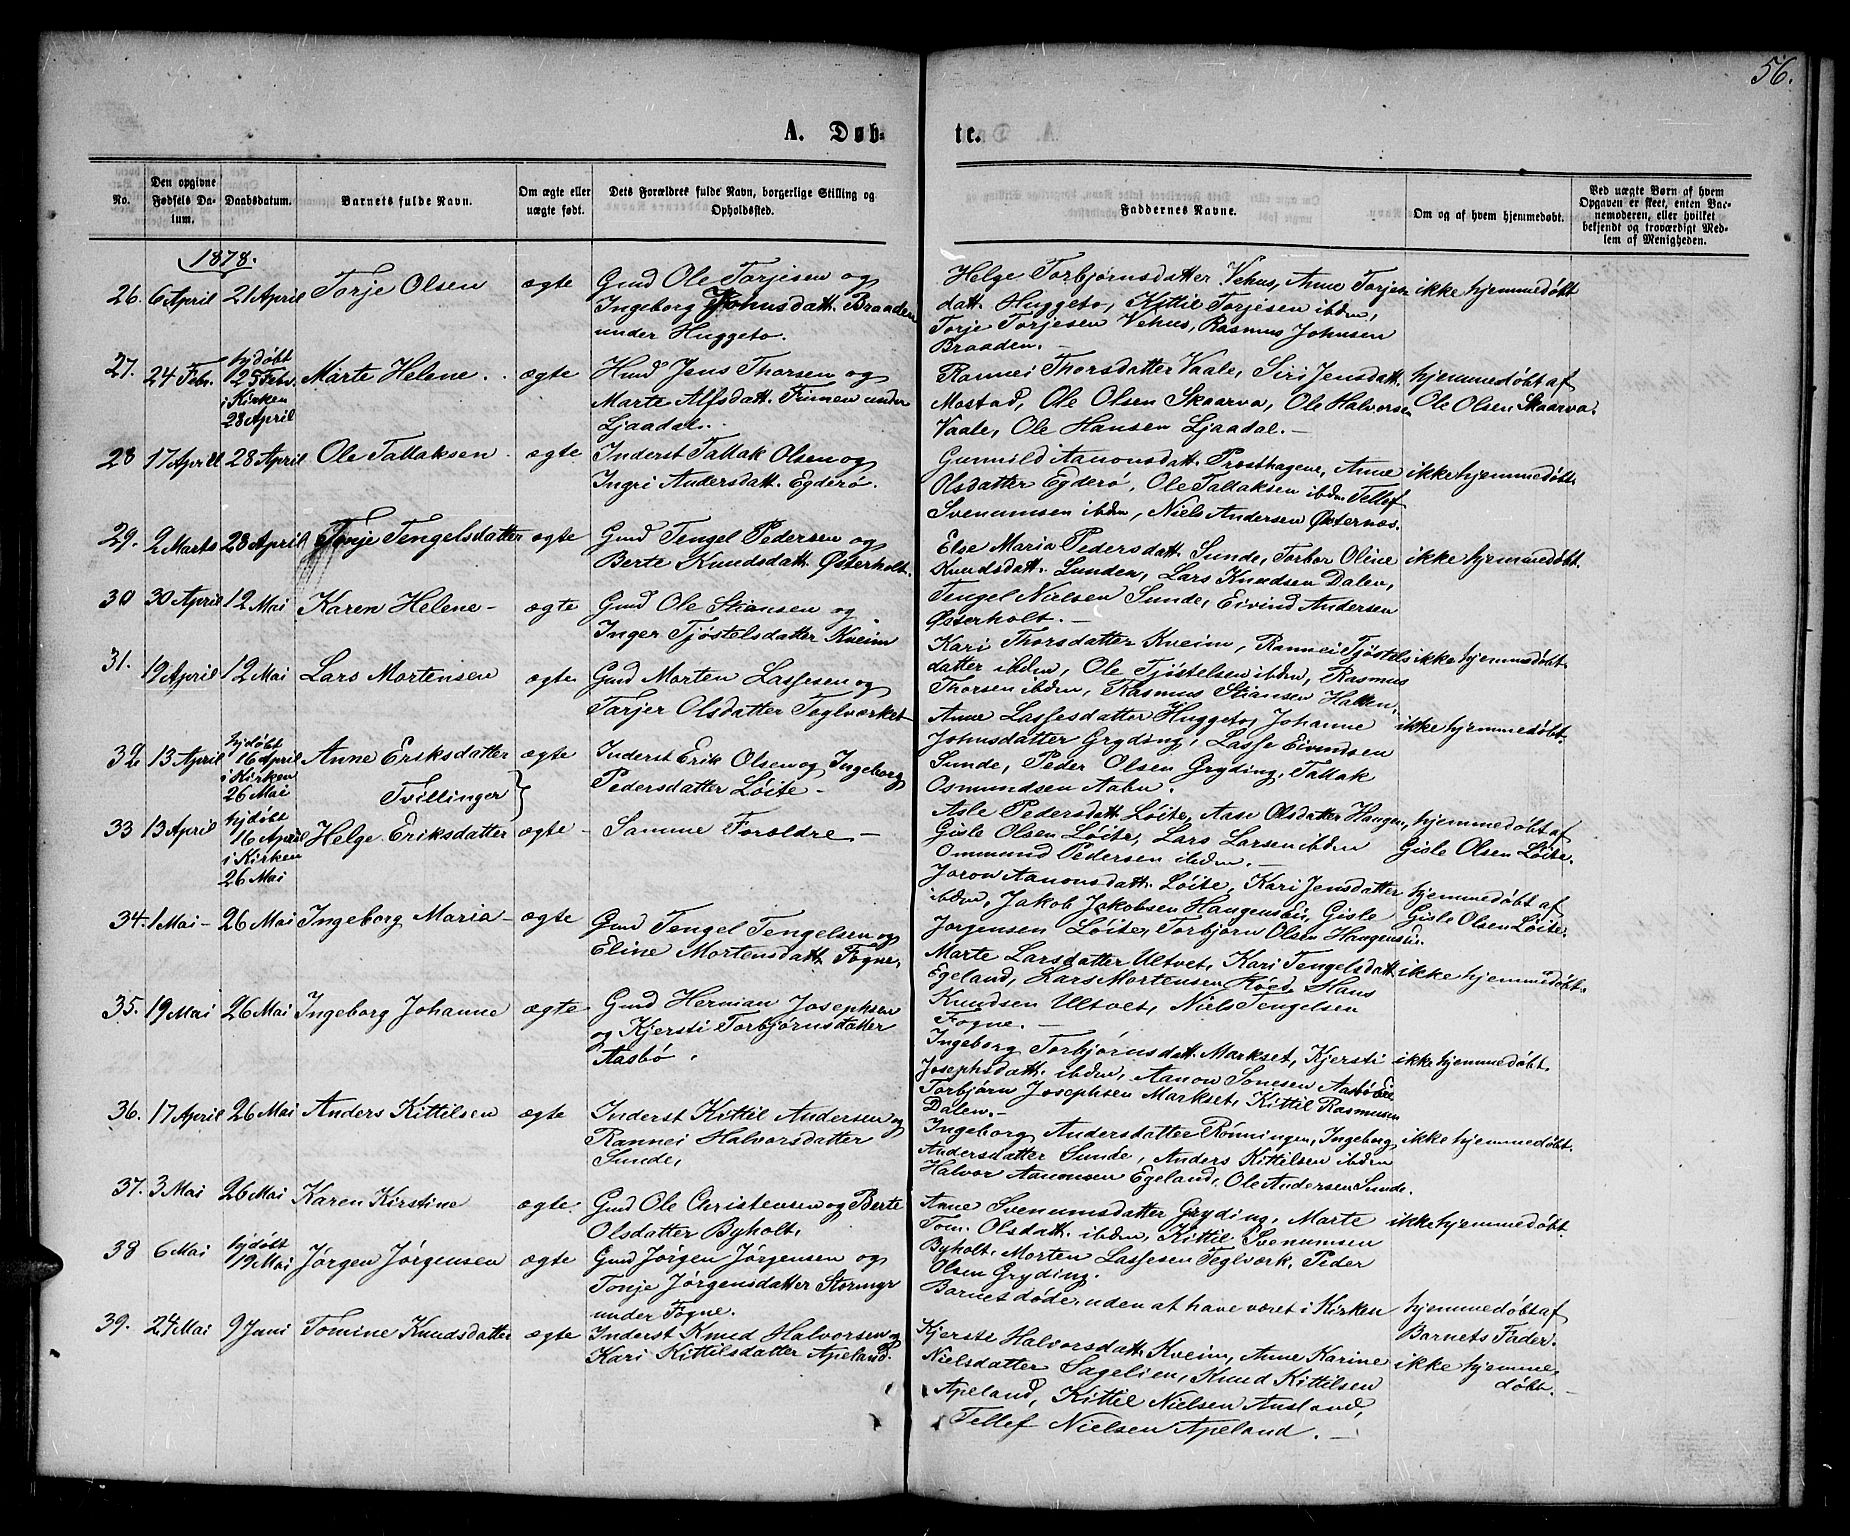 56.
A. Døb-
te.
No.
Den opgivne Fødsels Datum.
Daabsdatum.
Barnets fulde Navn.
Om ægte eller uægte født.
Dets Forældres fulde Navn, borgerlige Stilling og Opholdssted.
Faddernes Navne.
Om og af hvem hjemmedøbt.
Ved uægte Børn af hvem Opgaven er skeet, enten Barnemoderen, eller hvilket bekjendt og troværdigt Medlem af Menigheden.
1878.
26. 6 April 21 April Torje Olsen ægte Gmd Ole Torjesen og
Ingeborg Johnsdatt. Braaden
under Huggeto.
Helge Torbjørnsdatter Vehus, Anne Torjes
datt. Huggeto, Kittil Torjesen ibdm,
Torje Torjesen Vehus, Rasmus Johnsen
Braaden. -
ikke hjemmedøbt
27. 24 Febr. hjdøbt
25 Febr.
i Kirken
28 April
Marte Helene. ægte Hmd Jens Thorsen og
Marte Alfsdatt. Fumen under
Ljaadal.
Rannei Thorsdatter Vaale, Siri Jensdatt.
Mostad, Ole Olsen Skaarva, Ole Halvorsen
Vaale, Ole Hansen Ljaadal. -
hjemmedøbt af
Ole Olsen Skaarva.
28 17 April 28 April Ole Tallaksen ægte Inderst Tallak Olsen og
Ingri Andersdatt. Egderø.
Gunvild Aanonsdatt. Præsthagene, Anne
Olsdatter Egderø, Ole Tallaksen ibdm Tellef
Svenumsen ibdm, Niels Andersen Østernæs.
ikke hjemmedøbt.
29. 2 Marts 28 April Tonje Tengelsdatter ægte Gmd Tengel Pedersen og
Berte Knudsdatt. Østerholt.
Else Maria Pedersdatt. Sunde, Torbor Oline
Knudsdatt. Lunden, Lars Knudsen Dalen,
Tengel Nielsen Sunde, Eivind Andersen
Østerholt. -
ikke hjemmedøbt
30 30 April 12 Mai Karen Helene - ægte Gmd Ole Stiansen og
Inger Tjøstelsdatter Kveim
Kari Thorsdatter Kveim, Rannei Tjøstels
datter ibdm, Ole Tjøstelsen ibdm, Rasmus
Thorsen ibdm, Rasmus Stiansen Hallen.
ikke hjemmedøbt
31. 19 April 12 Mai Lars Mortensen ægte Gmd Morten Lassesen og
Tarjer Olsdatter Teglværket
Anne Lassesdatter Huggeto, Johanne
Johnsdatter Gryding, Lasse Eivindsen
Sunde, Peder Olsen Gryding, Tallak
Osmundsen Aabu.
ikke hjemmedøbt.
32 13 April hjdøbt
16 April
i Kirken
26 Mai
Anne Eriksdatter
Tvillinger
ægte Inderst Erik Olsen og Ingeborg
Pedersdatter Løite -
Asle Pedersdatt. Løite, Aase Olsdatter Haugen,
Gisle Olsen Løite, Lars Larsen ibdm
Ommund Pedersen ibdm. -
hjemmedøbt af
Gisle Olsen Løite.
33 13 April hjdøbt
16 April
i Kirken
26 Mai
Helge Eriksdatter ægte - Samme Forældre -
Joron Aanonsdatt. Løite, Kari Jensdatter
ibdm, Jakob Jakobsen Haugensei, Gisle
Jørgensen Løite, Torbjørn Olsen Haugensei.
hjemmedøbt af
Gisle Olsen Løite.
34. 1 Mai - 26 Mai Ingeborg Maria - ægte Gmd Tengel Tengelsen og
Eline Mortensdatt. Fogne.
Marte Larsdatter Ultvet, Kari Tengelsdatt.
Egeland, Lars Mortensen Hoed, Hans
Knudsen Ultvet, Niels Tengelsen
Fogne. -
ikke hjemmedøbt.
35. 19 Mai 26 Mai Ingeborg Johanne ægte Gmd Herman Josephsen
og Kjersti Torbjørnsdatter
Aasbø.
Ingeborg Torbjørnsdatt. Markset, Kjersti
Josephsdatt. ibdm, Aanon Sonesen Aasbø Eie
Torbjørn Josephsen Markset, Kittil Rasmusen
Dalen. -
ikke hjemmedøbt.
36. 17 April 26 Mai Anders Kittilsen ægte Inderst Kittil Andersen og
Rannei Halvorsdatter
Sunde,
Ingeborg Andersdatter Rønningen, Ingeborg
Andersdatter Sunde, Anders Kittilsen ibdm
Halvor Aanonsen Egeland, Ole Andersen Sunde.
ikke hjemmedøbt.
37. 3 Mai 26 Mai Karen Kirstine ægte. Gmd Ole Christensen og Berte
Olsdatter Byholt,
Anne Svenumsdatter Gryding, Marte
Tom. Olsdatt. ibdm, Kittil Svenumsen
Byholt. Morten Lassesen Teglværk, Peder
Olsen Gryding.
ikke hjemmedøbt.
38 6 Mai hjdøbt
19 Mai
Jørgen Jørgensen ægte Gmd Jørgen Jørgensen og
Tonje Jørgensdatter Stormyr
under Fogne.
Barnet døde uden at have været i Kirken
hjemmedøbt af
Barnets Fader.
39. 24 Mai 9 Juni Tomine Knudsdatter ægte Inderst Knud Halvorsen og
Kari Kittilsdatter Apeland.
Kjerste Halvorsdatt. Kveim, Anne Karine
Nielsdatter Sagelien, Knud Kittilsen
Apeland, Kittil Nielsen Ausland,
Tellef Nielsen Apeland. -
ikke hjemme,
døbt. -